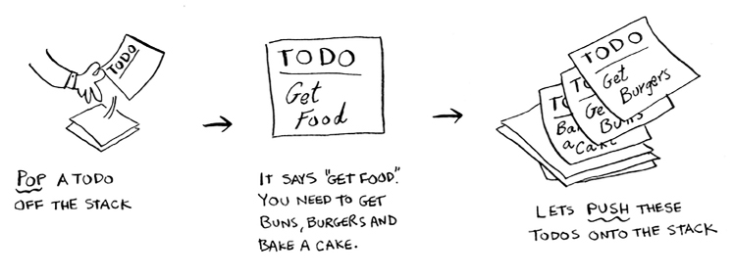 TODO
POP A TODO
OFF THE STACK
TODO
Get
Food
IT SAYS "GET FOOD."
YOU NEED TO GET
BUNS, BURGERS AND
BAKE A CAKE.
TODO
Get
Burgers
TO
Ge
Buns
TO
Ba
a
Cake
LETS PUSH THESE
TODOS ONTO THE STACK